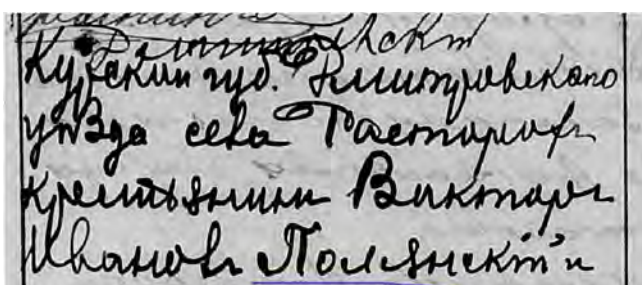 Курской губ. Дмитровскаго
уѣзда села Расторогъ
крестьянинъ Викторъ
Ивановъ Полянскій и